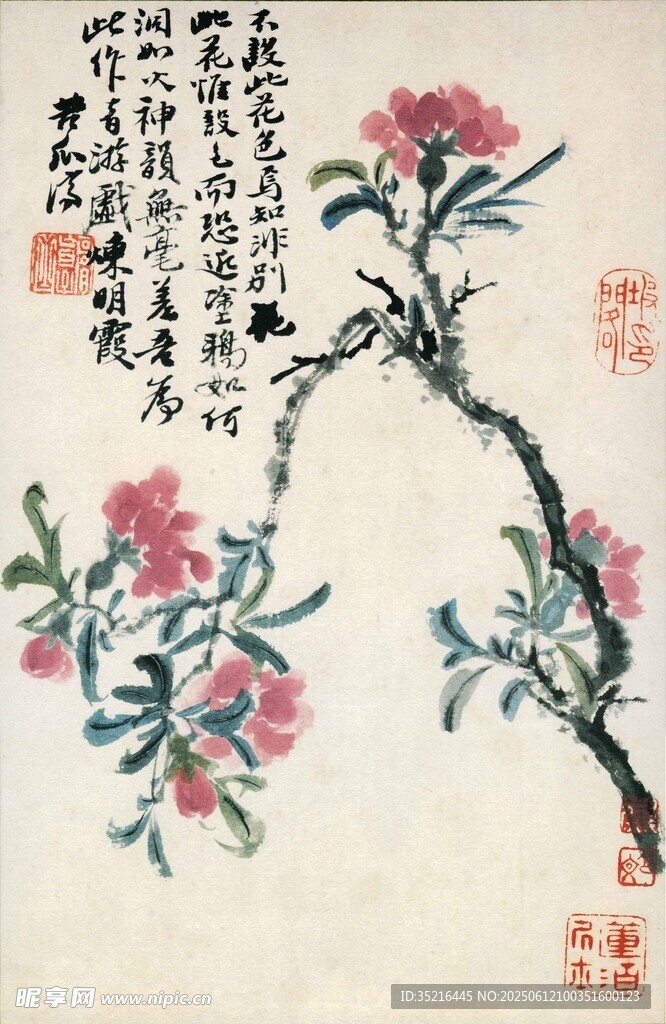 不設此花色焉知非別花
此花惟設色而恐近塗鴉如何
洞如以神韻無毫差吾爲
此作音游戲煉明霞
苦瓜濟
董泊
昵享网 www.nipic.cn
ID:35216445 NO:20250612100351600123